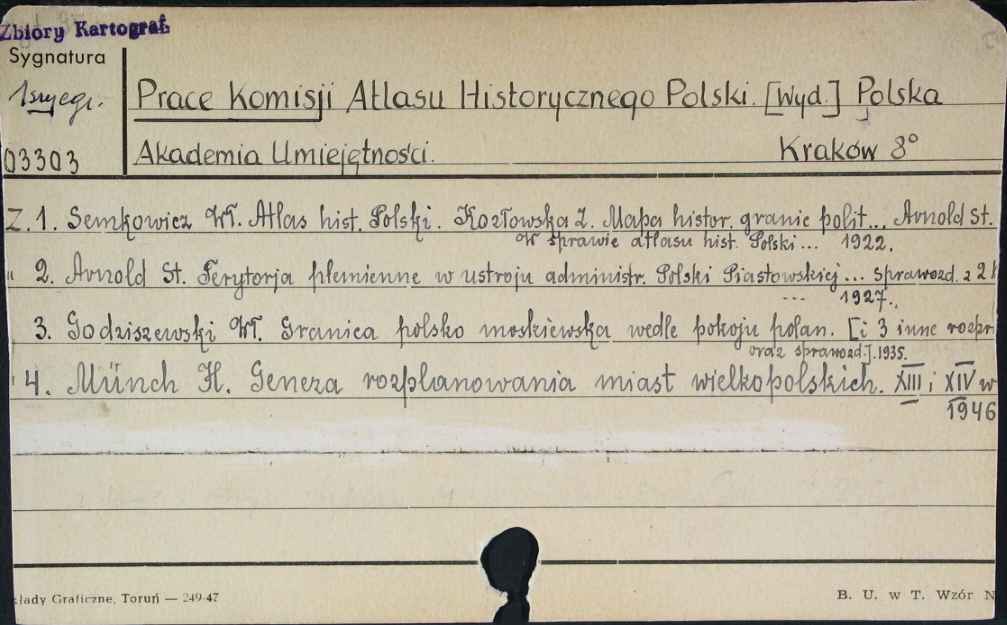 Zbiory Kartograf.
Sygnatura
Prace Komisji Atlasu Historycznego Polski. [Wyd.] Polska
03303 Akademia Umiejętności. Kraków 8°
Z. 1. Semkowicz Wł. Atlas hist. Polski. Kozłowska Z. Mapa histor. granic polit... Arnold St.
W sprawie atlasu hist. Polski... 1922.
" 2. Arnold St. Terytorja plemienne w ustroju administr. Polski Piastowskiej... sprawozd. z 2
... 1927.
3. Godziszewski Wł. Granica polsko moskiewska wedle pokoju polan. [i 3 inne rozpr
oraz sprawozd.]. 1935.
" 4. Münch H. Geneza rozplanowania miast wielkopolskich. XIII i XIV w
1946
kłady Graficzne, Toruń — 249-47
B. U. w T. Wzór N